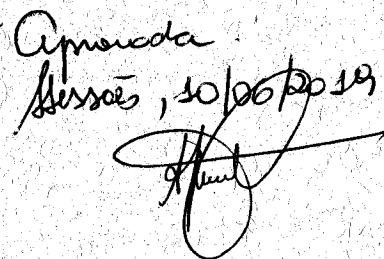 Aprovada
Sessões, 10/06/2019